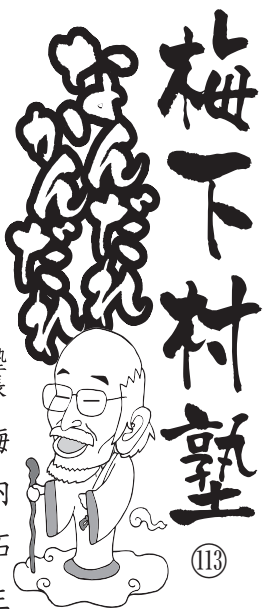 梅下村塾
113
なんだれ
かんだれ
塾長 梅内拓生